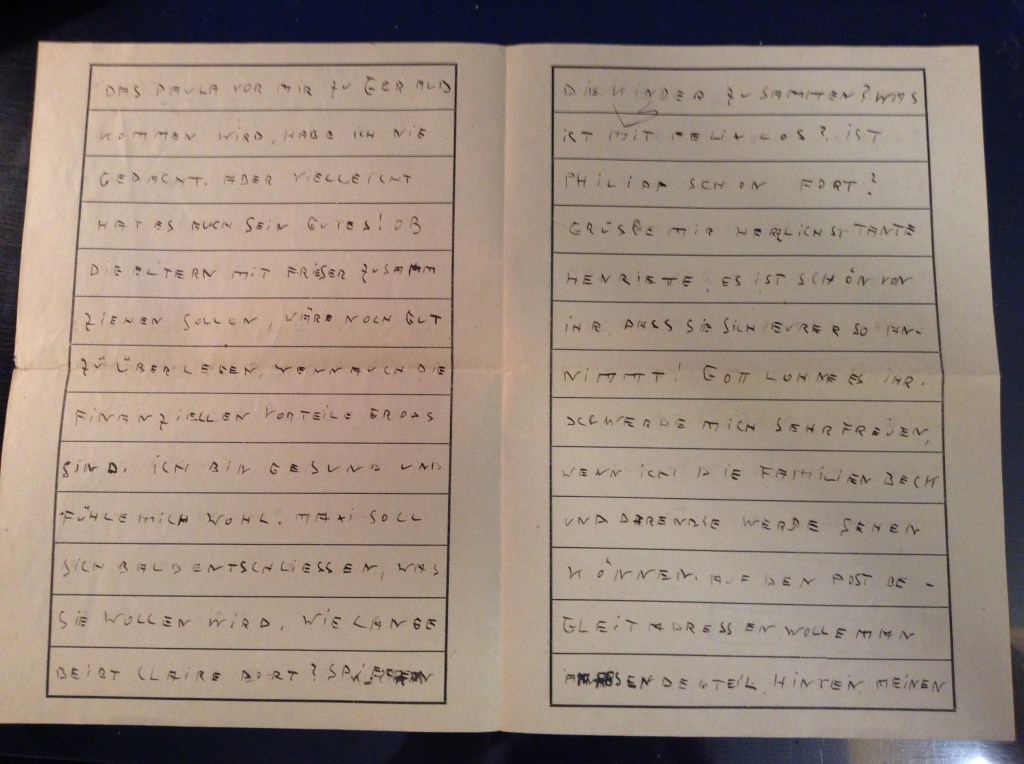 DAS PAULA VOR MIR ZU GERALD
KOMMEN WIRD, HABE ICH NIE
GEDACHT. ABER VIELLEICHT
HAT ES AUCH SEIN GUTES! OB
DIE ELTERN MIT FRISER ZUSAMM
ZIEHEN SOLLEN, WÄRE NOCH GUT
ZU ÜBERLEGEN, WENN AUCH DIE
FINANZIELLEN VORTEILE GROSS
SIND. ICH BIN GESUND UND
FÜHLE MICH WOHL. MAXI SOLL
SICH BALD ENTSCHLIESSEN, WAS
SIE WOLLEN WIRD. WIE LANGE
BEIBT CLAIRE DORT?
DIE KINDER ZUSAMMEN? WAS
IST MIT FELIX LOS? IST
PHILIDA SCHON FORT?
GRÜSSE MIR HERZLICHST TANTE
HENRIETTE. ES IST SCHÖN VON
IHR, DASS SIE SICH EURER SO AN-
NIMMT! GOTT LOHNE ES IHR.
ICH WERDE MICH SEHR FREUEN,
WENN ICH DIE FAMILIEN BECK
UND WERDE SEHEN
KÖNNEN. AUF DEN POST BE-
GLEITADRESSEN WOLLE MAN
HINTEN MEINEN